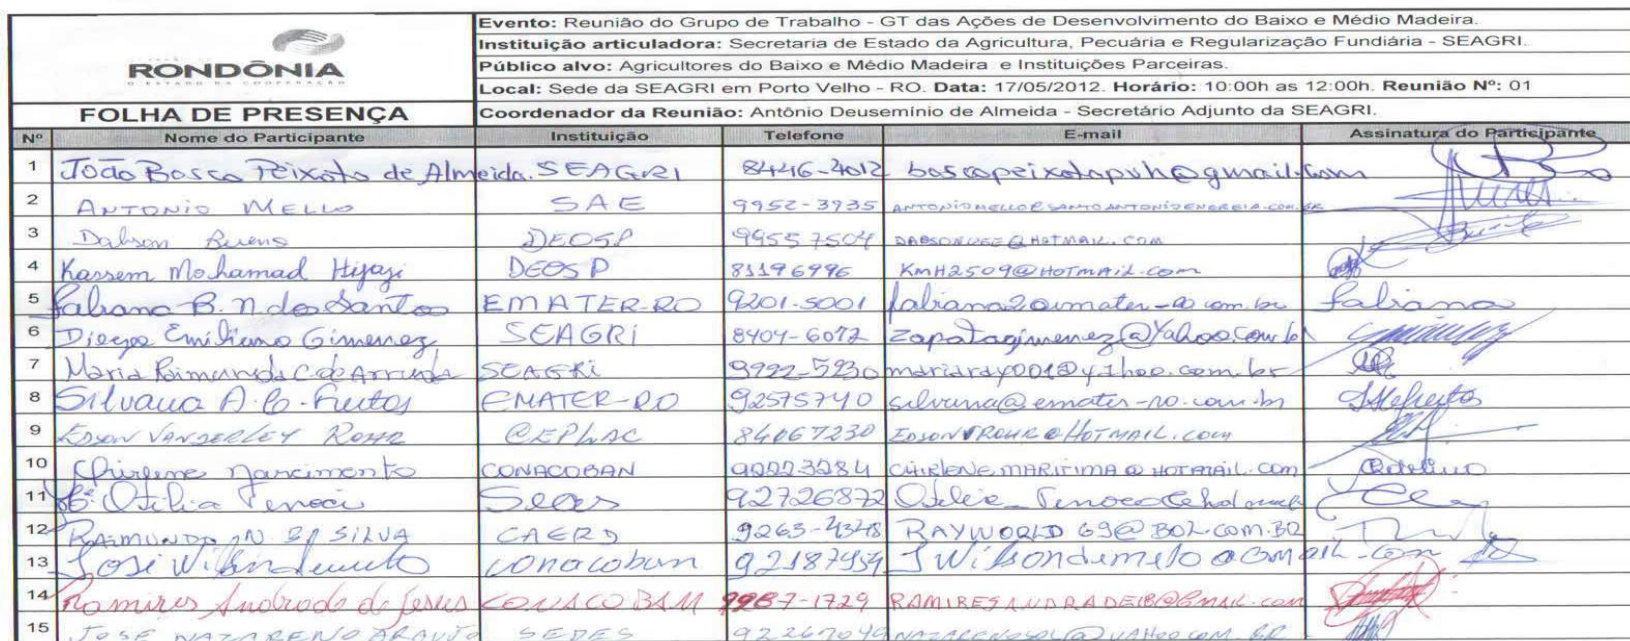 Evento: Reunião do Grupo de Trabalho - GT das Ações de Desenvolvimento do Baixo e Médio Madeira.
Instituição articuladora: Secretaria de Estado da Agricultura, Pecuária e Regularização Fundiária - SEAGRI.
RONDÔNIA
Público alvo: Agricultores do Baixo e Médio Madeira e Instituições Parceiras.
Local: Sede da SEAGRI em Porto Velho - RO. Data: 17/05/2012. Horário: 10:00h as 12:00h. Reunião Nº: 01
FOLHA DE PRESENÇA
Coordenador da Reunião: Antônio Deusemínio de Almeida - Secretário Adjunto da SEAGRI.
Nº Nome do Participante Instituição Telefone E-mail Assinatura do Participante
1 João Bosco Peixoto de Almeida. SEAGRI 8446-4012 boscopeixotopvh@gmail.com
2 ANTONIO MELLO SAE 9952-3935 ANTONIOMELLO@SANTOANTONIOENERGIA.COM.BR
3 Dabson Bueno DEOSP 99557504
4 Kassem Mohamad Hijazi DEOSP 81196996 KMH2509@HOTMAIL.COM
5 Fabiana B. N. dos Santos EMATER-RO 9201-5001 Fabiana
6 Diego Emiliano Gimenez SEAGRI 8404-6072 zapatagimenez@yahoo.com.br
7 Maria Raimunda C de Arruda SEAGRI 9922-5230 mariaray001@yahoo.com.br
8 Silvana A. C. Freitas EMATER-RO 92575740 silvana@emater-ro.com.br
9 EDSON VANDERLEY CEPLAC 84067230
10 Chirlene Nascimento CONACOBAN 92223284 CHIRLENE.MARIFIMA@HOTMAIL.COM
11 Otilia Seas 92726872
12 RAIMUNDO N. DA SILVA CAERD 9263-4348 RAYWORLD69@BOL.COM.BR
13 José Wilson de melo conacobam 92187954 JWilsondemelo@Gmail.com
14 Ramires Andrade de Jesus CONACOBAM 9987-1729 RAMIRESANDRADEIB@GMAIL.com
15 JOSÉ NAZARENO ARAUJO SEDES